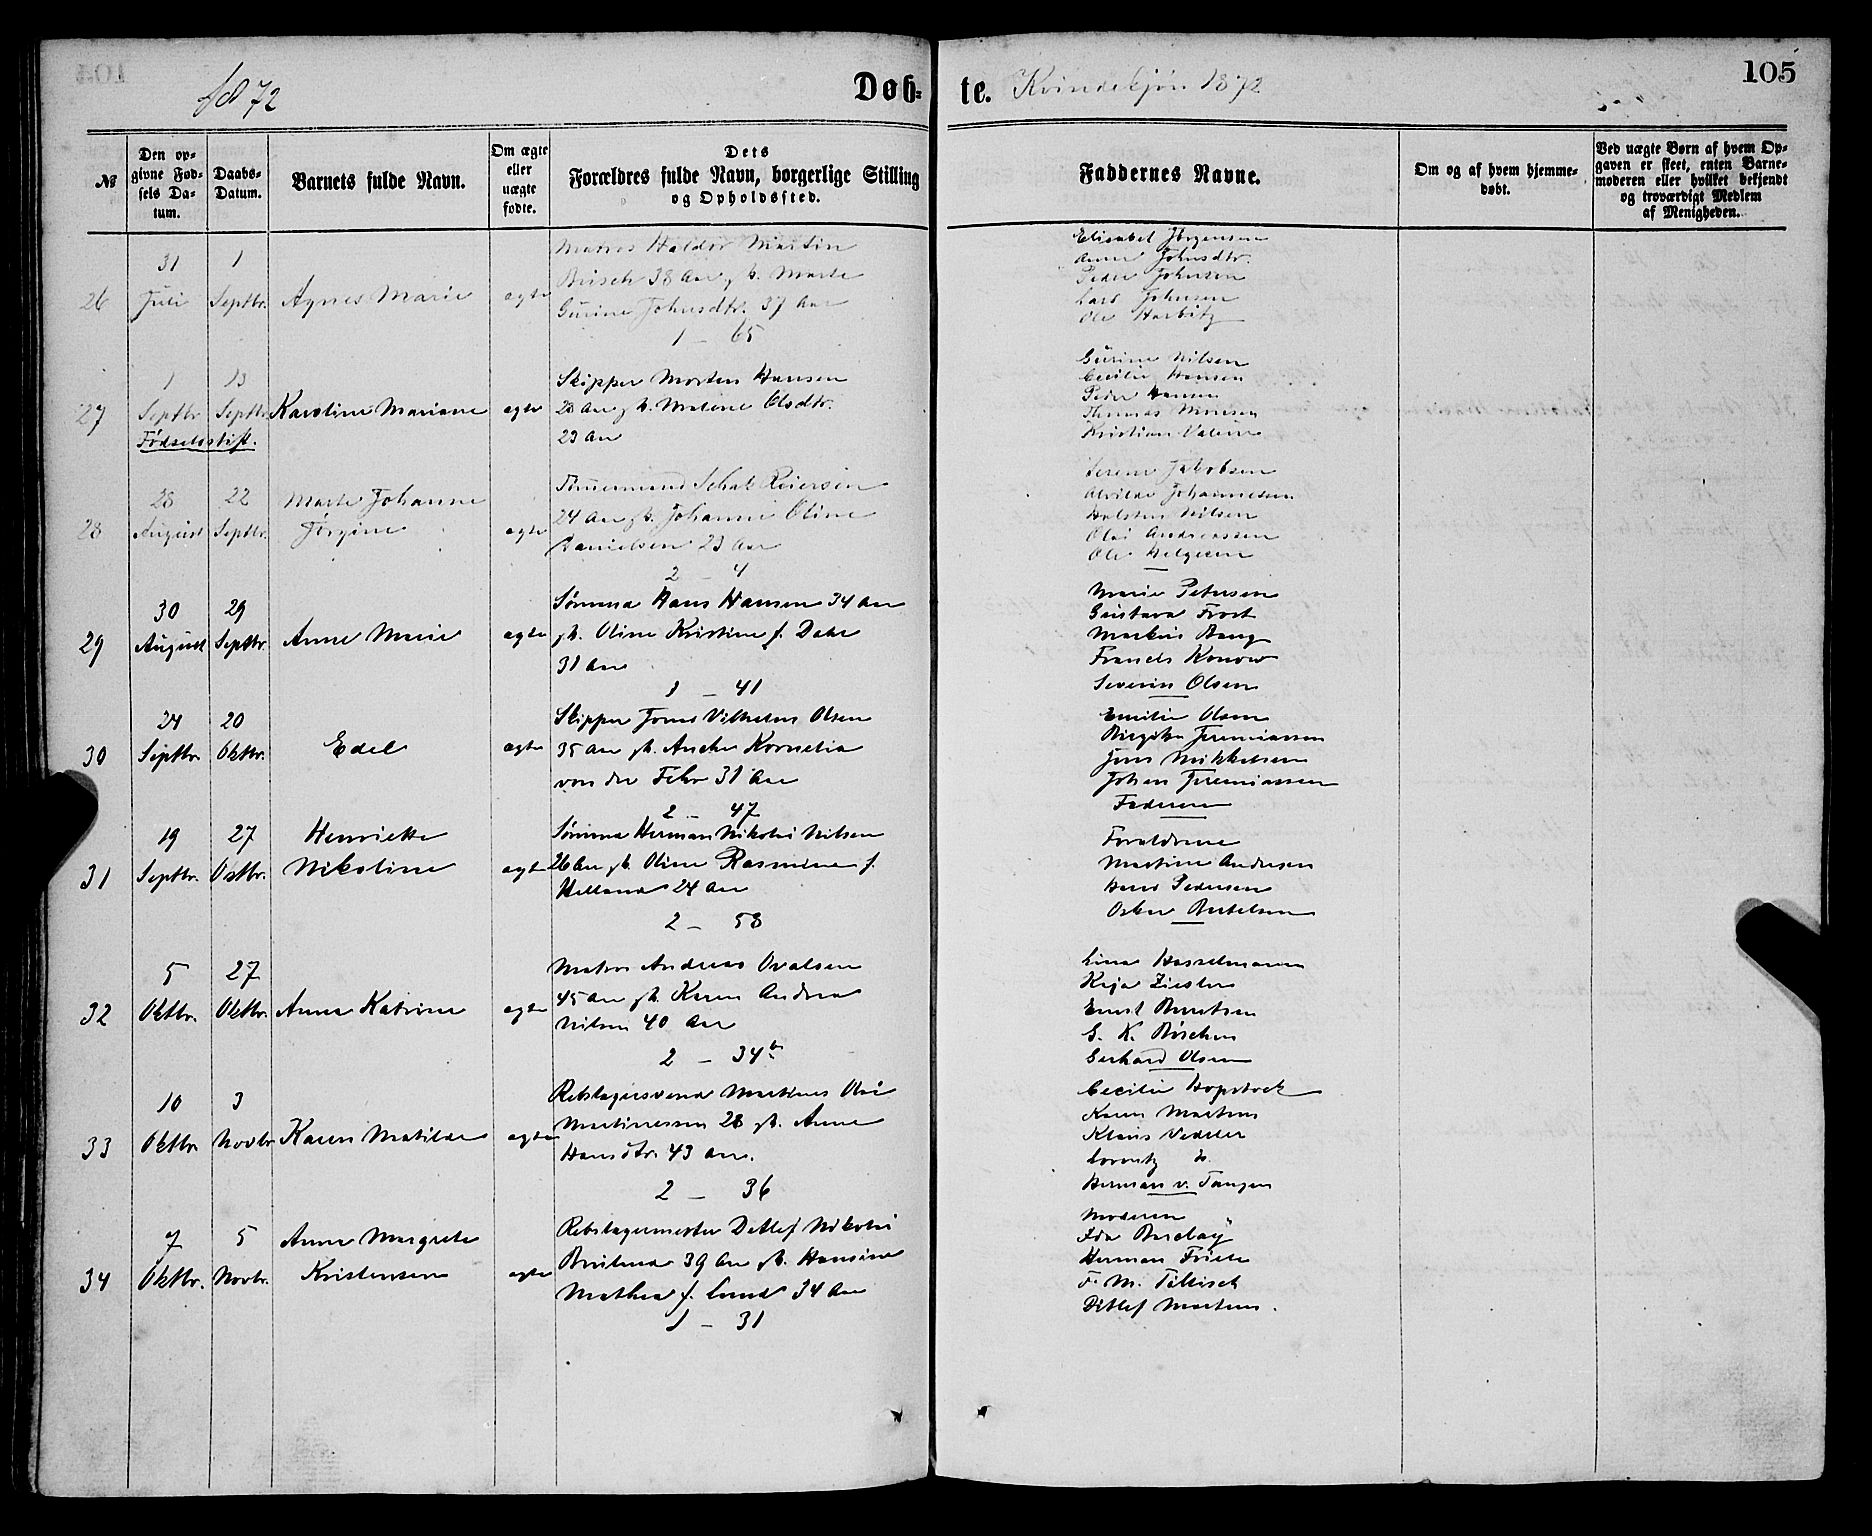 1872
Døb-
te. Kvindekjøn 1872
105
№
Den op-
givne Fød-
sels Da-
tum.
Daabs-
Datum.
Barnets fulde Navn.
Om ægte
eller
uægte
fødte.
Dets
Forældres fulde Navn, borgerlige Stilling
og Opholdssted.
Faddernes Navne.
Om og af hvem hjemme-
døbt.
Ved uægte Børn af hvem Op-
gaven er skeet, enten Barne-
moderen eller hvilket bekjendt
og troværdigt Medlem
af Menigheden.
26
31
Juli
1
Septbr.
Agnes Marie
ægte
Martin
38 Aar gh. Marte
Gurine Johnsdtr. 37 Aar
1 - 65
Elisabet Jörgensen
Anne Johnsdtr.
Peder Johnsen
Lars Johnsen
Ole Harbitz
27
1
Septbr
13
Septbr
Fødselsstift.
Karoline Mariane
ægte
Skipper Morten Hansen
28 Aar gh. Malene Olsdtr.
23 Aar
Gurine Nilsen
Cecilie Hansen
Peder Hansen
Thomas Monsen
Kristian
28
28
August
22
Septbr.
Marte Johanne
Jörgine
ægte
Reiersen
24 Aar gh. Johanne Oline
Danielsen 23 Aar
2 - 4
Jakobsen
Johannesen
Halsten Nilsen
Olai Andreassen
Ole Helgesen
29
30
August
29
Septbr.
Anne Marie
ægte
Sømand Hans Hansen 34 Aar
gh. Oline Kristine f. Dahl
31 Aar
1 - 41
Marie Petersen
Gustava Frost
Markus Bang
Frands Konow
Severin Olsen
30
24
Septbr.
20
Oktbr.
Edel
ægte
Skipper Jons Vilhelm Olsen
35 Aar gh. Kornelia
von der Fehr 31 Aar
2 - 47
Emilie Olsen
Birgitte Jeremiassen
Jens Mikkelsen
Johan Jeremiassen
Faderen
31
19
Septbr.
27
Oktbr.
Henriette
Nikoline
ægte
Sømand Herman Nikolai Nilsen
26 Aar gh. Oline Rasmine f.
Helland 24 Aar
2 - 58
Forældrene
Martine Andresen
Hans Pedersen
Oskar Bertelsen
32
5
Oktbr.
27
Oktbr.
Anna Katrine
ægte
Matros Andreas Ovalsen
45 Aar gh. Karen Andrea
Nilsen 40 Aar
2 - 34b
Lina Hasselmann
Kaja Ziesler
Ernst Berntsen
G. K. Büscher
Gerhard Olsen
33
10
Oktbr.
3
Novbr
Karen Matilde
ægte
Rebslagersvend Martines Olai
Martinessen 28 gh. Anne
Hansdtr. 43 Aar.
2 - 36
Cecilie Hopstock
Karen Martens
Klaus Vedeler
Lorentz
Herman v. Tangen
34
7
Oktbr.
5
Novbr.
Anne Margrete
Kristensen
ægte
Rebslagermester Detlef Nikolai
39 Aar gh. Hansine
Mathea f. Lund 34 Aar
1 - 31
Moderen
Ida Barclay
Herman Friele
F. M. Tillisch
Ditlef Martens.